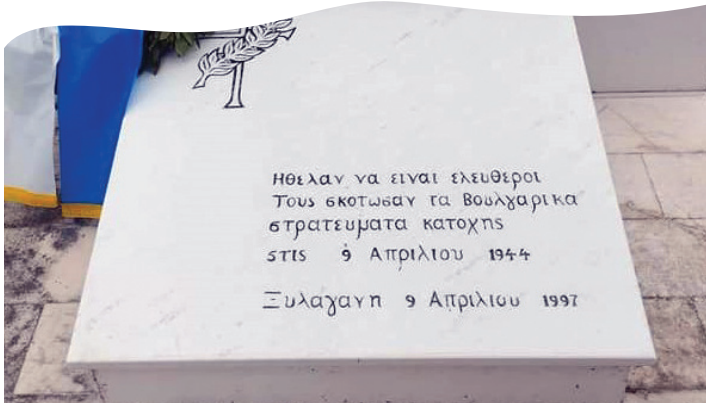 Ηθελαν να ειναι ελευθεροι
Τους σκοτωσαν τα Βουλγαρικα
στρατευματα κατοχης
στις 9 Απριλιου 1944
Ξυλαγανη 9 Απριλιου 1997